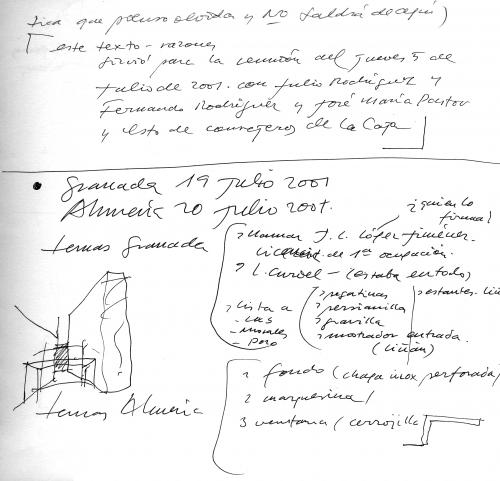 que pienso olvida y NO saldrá de aquí)
este texto - razones
sirvió para la reunión del jueves 5 de
Julio de 2001. con Julio Rodríguez y
Fernando Rodríguez y José María Pastor
y resto de consejeros de La Caja
• Granada 19 Julio 2001
Almería 20 julio 2001.
¿quien lo
firma?
temas Granada
llamar J. C. López Jiménez.
de 1ª ocupación.
(estaba en todo)
lista a
persianilla
gravilla
mostrador entrada.
(Liñán)
estantes.
temas Almería
1 fondo (chapa inox perforada)
2 marquesina /
3 ventana (cerrojilla